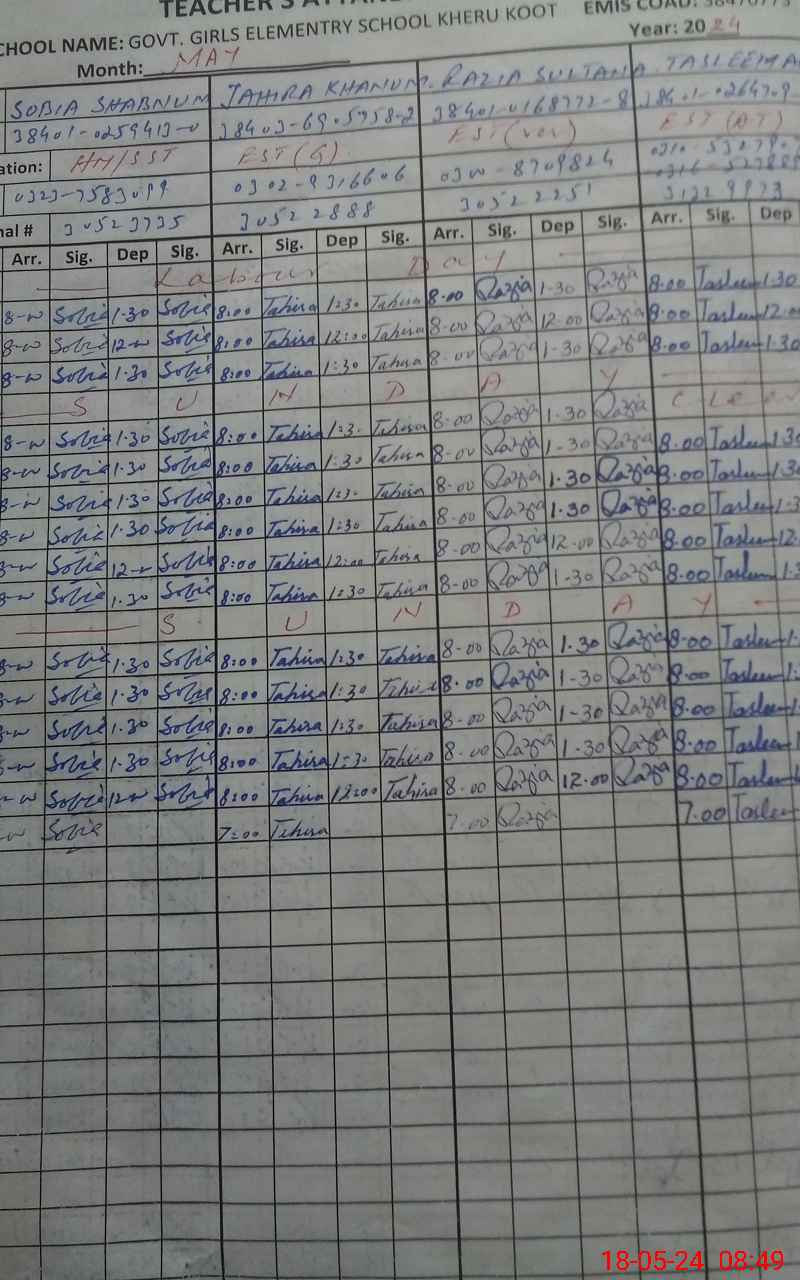 TEACHER'S ATTAN
CHOOL NAME: GOVT. GIRLS ELEMENTRY SCHOOL KHERU KOOT EMIS COAD:
Month: MAY Year: 2024
SOBIA SHABNUM TAHIRA KHANUM RAZIA SULTANA TASLEEMA
38401-0259413-0 38403-6905758-2 38401-0168772-8
ation: HM/SST EST(G) EST EST(AT)
0323-7583099 0302-9316606 0300-8709824
nal # 30523735 30522888 30522251
Arr. Sig. Dep Sig. Arr. Sig. Dep Sig. Arr. Sig. Dep Sig. Arr. Sig. Dep
Labour Day
Sobia 1-30 Sobia 8:00 Tahira 1:30 Tahira 8-00 Razia 1-30 Razia 8-00 Tasleem 1-30
Sobia 12-00 Sobia 8:00 Tahira 12:00 Tahira 8-00 Razia 12-00 Razia 8-00 Tasleem 12-00
Sobia 1-30 Sobia 8:00 Tahira 1:30 Tahira 8-00 Razia 1-30 Razia 8-00 Tasleem 1-30
S U N D A Y
Sobia 1-30 Sobia 8:00 Tahira 1:3 Tahira 8-00 Razia 1-30 Razia
Sobia 1-30 Sobia 8:00 Tahira 1:30 Tahira 8-00 Razia 1-30 Razia 8-00 Tasleem 1-30
Sobia 1-30 Sobia 8:00 Tahira Tahira 8-00 Razia 1-30 Razia 8-00 Tasleem 1-30
Sobia 1-30 Sobia 8:00 Tahira 1:30 Tahira 8-00 Razia 1-30 Razia 8-00 Tasleem 1-3
Sobia 12-00 Sobia 8:00 Tahira 12:00 Tahira 8-00 Razia 12-00 Razia 8-00 Tasleem 12-
Sobia 1-30 Sobia 8:00 Tahira 1:30 Tahira 8-00 Razia 1-30 Razia 8-00 Tasleem 1-3
S U N D A Y
Sobia 1-30 Sobia 8:00 Tahira 1:30 Tahira 8-00 Razia 1-30 Razia 8-00 Tasleem 1-
Sobia 1-30 Sobia 8:00 Tahira 1:30 Tahira 8-00 Razia 1-30 Razia 8-00 Tasleem 1-
Sobia 1-30 Sobia 8:00 Tahira 1:30 Tahira 8-00 Razia 1-30 Razia 8-00 Tasleem 1-
Sobia 1-30 Sobia 8:00 Tahira 1:30 Tahira 8-00 Razia 1-30 Razia 8-00 Tasleem
Sobia 12-00 Sobia 8:00 Tahira 12:00 Tahira 8-00 Razia 12-00 Razia 8-00 Tasleem
Sobia 7:00 Tahira 7-00 Razia 7-00 Tasleem
18-05-24 08:49